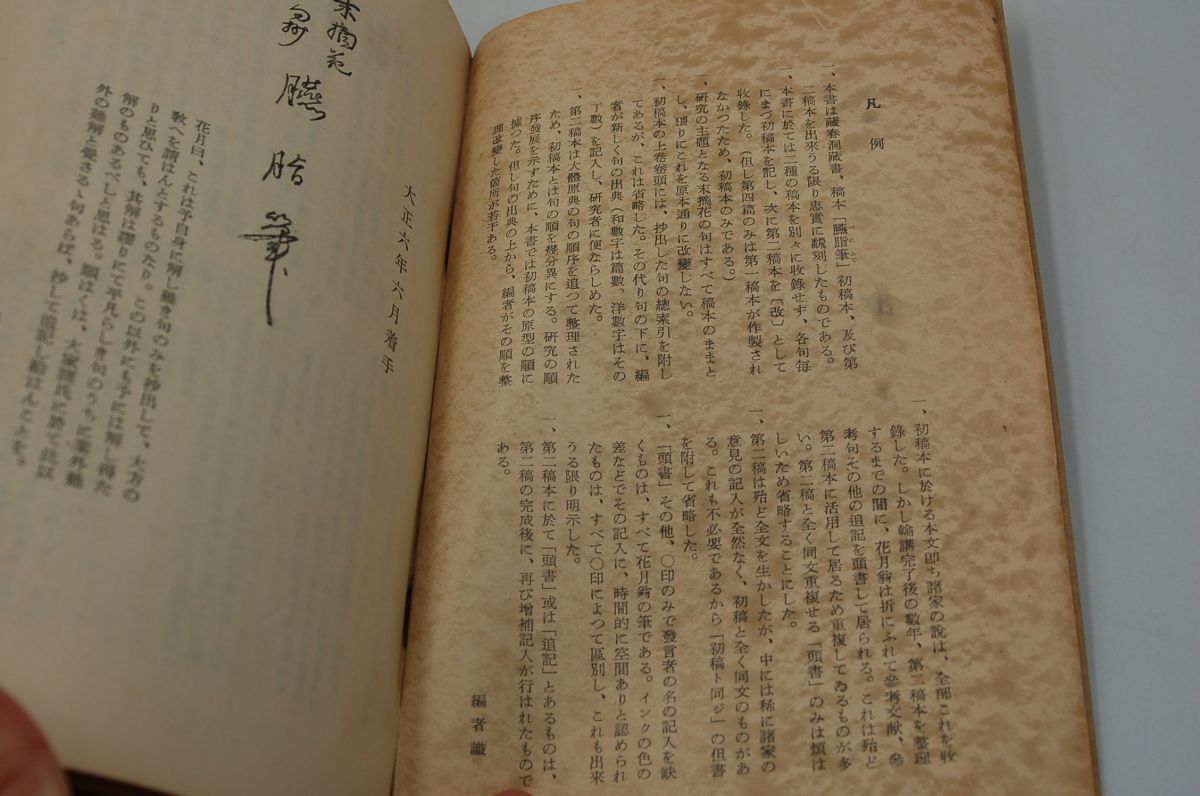 凡例
一、本書は蘊春洞蔵書、稿本「臙脂筆」初稿本、及び第
二稿本を出來うる限り忠實に飜刻したものである。
一、本書に於ては二種の稿本を別々に收錄せず、各句毎
にまづ初稿本を記し、次に第二稿本を〔改〕として
收錄した。（但し第四篇のみは第一稿本が作製され
なかつたため、初稿本のみである。）
一、研究の主題となる末摘花の句はすべて稿本のままと
し、猥りにこれを原本通りに改變しない。
一、初稿本の上卷卷頭には、抄出した句の總索引を附し
てあるが、これは省略した。その代り句の下に、編
者が新しく句の出典（和數字は篇數、洋數字はその
丁數）を記入し、研究者に便ならしめた。
一、第二稿本は大體原典の句の順序を追つて整理された
ため、初稿本とは句の順を幾分異にする。研究の順
序發展を示すために、本書では初稿本の原型の順に
據つた。但し句の出典の上から、編者がその順を整
理改變した箇所が若干ある。
一、初稿本に於ける本文卽ち諸家の說は、全部これを收
錄した。しかし輪講完了後の數年、第二稿本を整理
するまでの間に、花月翁は折にふれて參考文獻、參
考句その他の追記を頭書して居られる。これは殆ど
第二稿本に活用して居るため重複してゐるものが多
い。第二稿と全く同文重複せる「頭書」のみは煩は
しいため省略することにした。
一、第二稿は殆ど全文を生かしたが、中には稀に諸家の
意見の記入が全然なく、初稿と全く同文のものがあ
る。これも不必要であるから「初稿ト同ジ」の但書
を附して省略した。
一、「頭書」その他、〇印のみで發言者の名の記入を缺
くものは、すべて花月翁の筆である。インクの色の
差などでその記入に、時間的に空間ありと認められ
たものは、すべて〇印によつて區別し、これも出來
うる限り明示した。
一、第二稿本に於て「頭書」或は「追記」とあるものは、
第二稿の完成後に、再び增補記入が行はれたもので
ある。
編者識
末摘花
臙脂筆
大正六年六月着手
花月曰、これは予自身に解し難き句のみを抄出して、大方の
敎へを請はんとするものたり。この以外にも予には解し得た
りと思ひても、其解は謬りにて平凡らしき句のうちに案外難
解のものあるべしと思はる。願はくは、大家諸氏に於て此以
外の難解と覺さる丶句あらば、抄して追記し給はんことを。